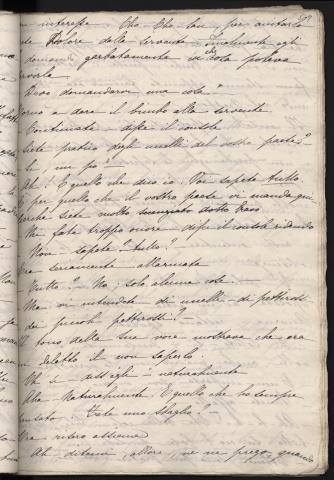 interesse Cho Cho San, per aiutar
dolore della servente Finalmente egli
domandò garbatamente di che cosa poteva
servirla.
Devo domandarvi una cosa"
Tornò a dare il bimbo alla servente
Continuate disse il console
Siete pratico degli uccelli del vostro paese?"
Sì un po'"
Ah! È quello che dico io. Voi sapete tutto.
per quello che il vostro paese vi manda qui
perchè siete molto
Mi fate troppo onore disse il console ridendo
Non sapete tutto?
Era seriamente allarmata
Tutto? No; solo alcune cose.
Ma vi intendete di uccelli di pettirossi
dei piccoli pettirossi?
Il tono della sua voce mostrava che era
delitto il non saperlo
Oh sì diss'egli naturalmente
Naturalmente. È quello che ho sempre
pensato. tante uno sbaglio? -
risero assieme
Ah ditemi, allora, ve ne prego, quando